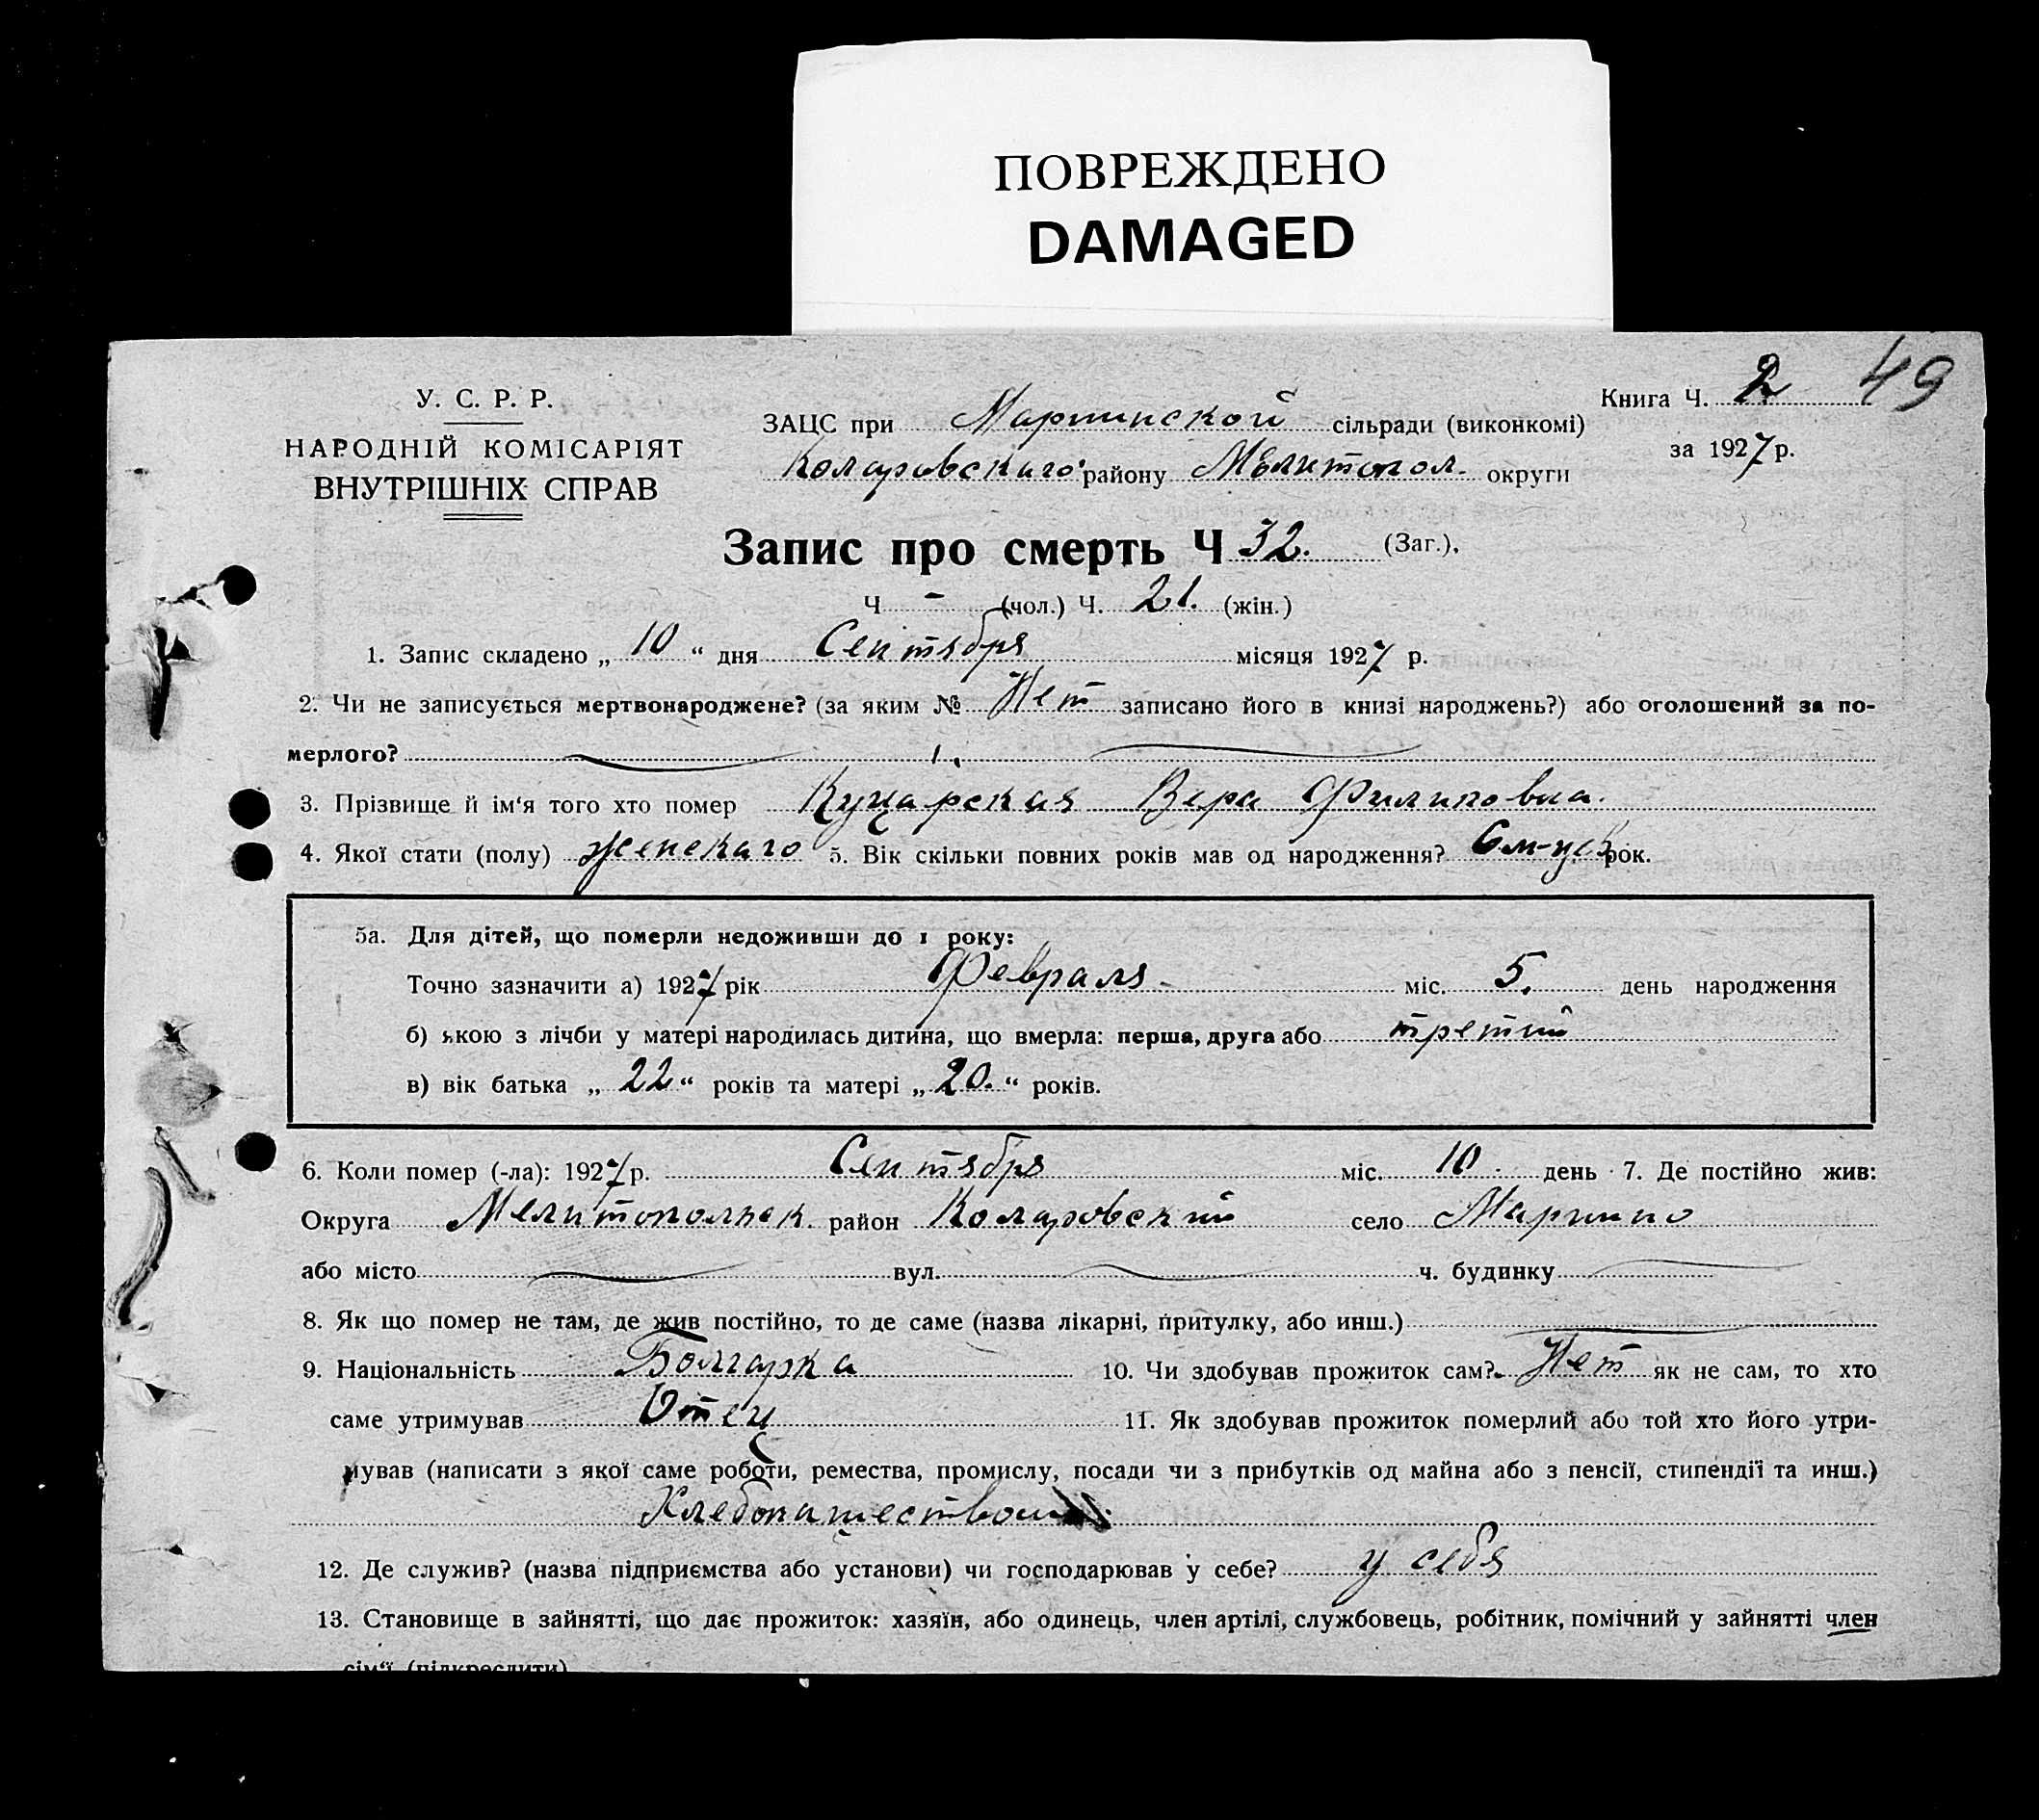 ПОВРЕЖДЕНО
DAMAGED
49
У. С. Р. Р.
НАРОДНІЙ КОМІСАРІЯТ
ВНУТРІШНІХ СПРАВ
ЗАЦС при Мариинской сільради (виконкомі)
Коларовскаго району Мелитопол. округи
Книга Ч. 2
за 1927 р.
Запис про смерть Ч 32. (Заг.).
Ч - (чол.) Ч. 21. (жін.)
1. Запис складено „ 10 “ дня Сентября місяця 1927 р.
2. Чи не записується мертвонароджене? (за яким № Нет записано його в книзі народжень?) або оголошений за по-
мерлого?
3. Прізвище й ім‘я того хто помер Куцарская Вера Филиповна.
4. Якої стати (полу) женскаго 5. Вік скільки повних років мав од народження? 6 м-цев рок.
5а. Для дітей, що померли недоживши до 1 року:
Точно зазначити а) 1927 рік Февраля міс. 5. день народження
б) якою з лічби у матері народилась дитина, що вмерла: перша, друга або третий
в) вік батька „ 22 “ років та матері „ 20. “ років.
6. Коли помер (-ла): 1927 р. Сентября міс. 10. день 7. Де постійно жив:
Округа Мелитопольск. район Коларовский село Мариино
або місто вул. ч. будинку
8. Як що помер не там, де жив постійно, то де саме (назва лікарні, притулку, або инш.)
9. Національність Болгарка 10. Чи здобував прожиток сам? Нет як не сам, то хто
саме утримував Отец 11. Як здобував прожиток померлий або той хто його утри-
мував (написати з якої саме роботи, ремества, промислу, посади чи з прибутків од майна або з пенсії, стипендії та инш.)
Хлебопашеством
12. Де служив? (назва підприємства або установи) чи господарював у себе? у себя
13. Становище в зайнятті, що дає прожиток: хазяїн, або одинець, член артілі, службовець, робітник, помічний у зайнятті член
сім‘ї (підкреслити)